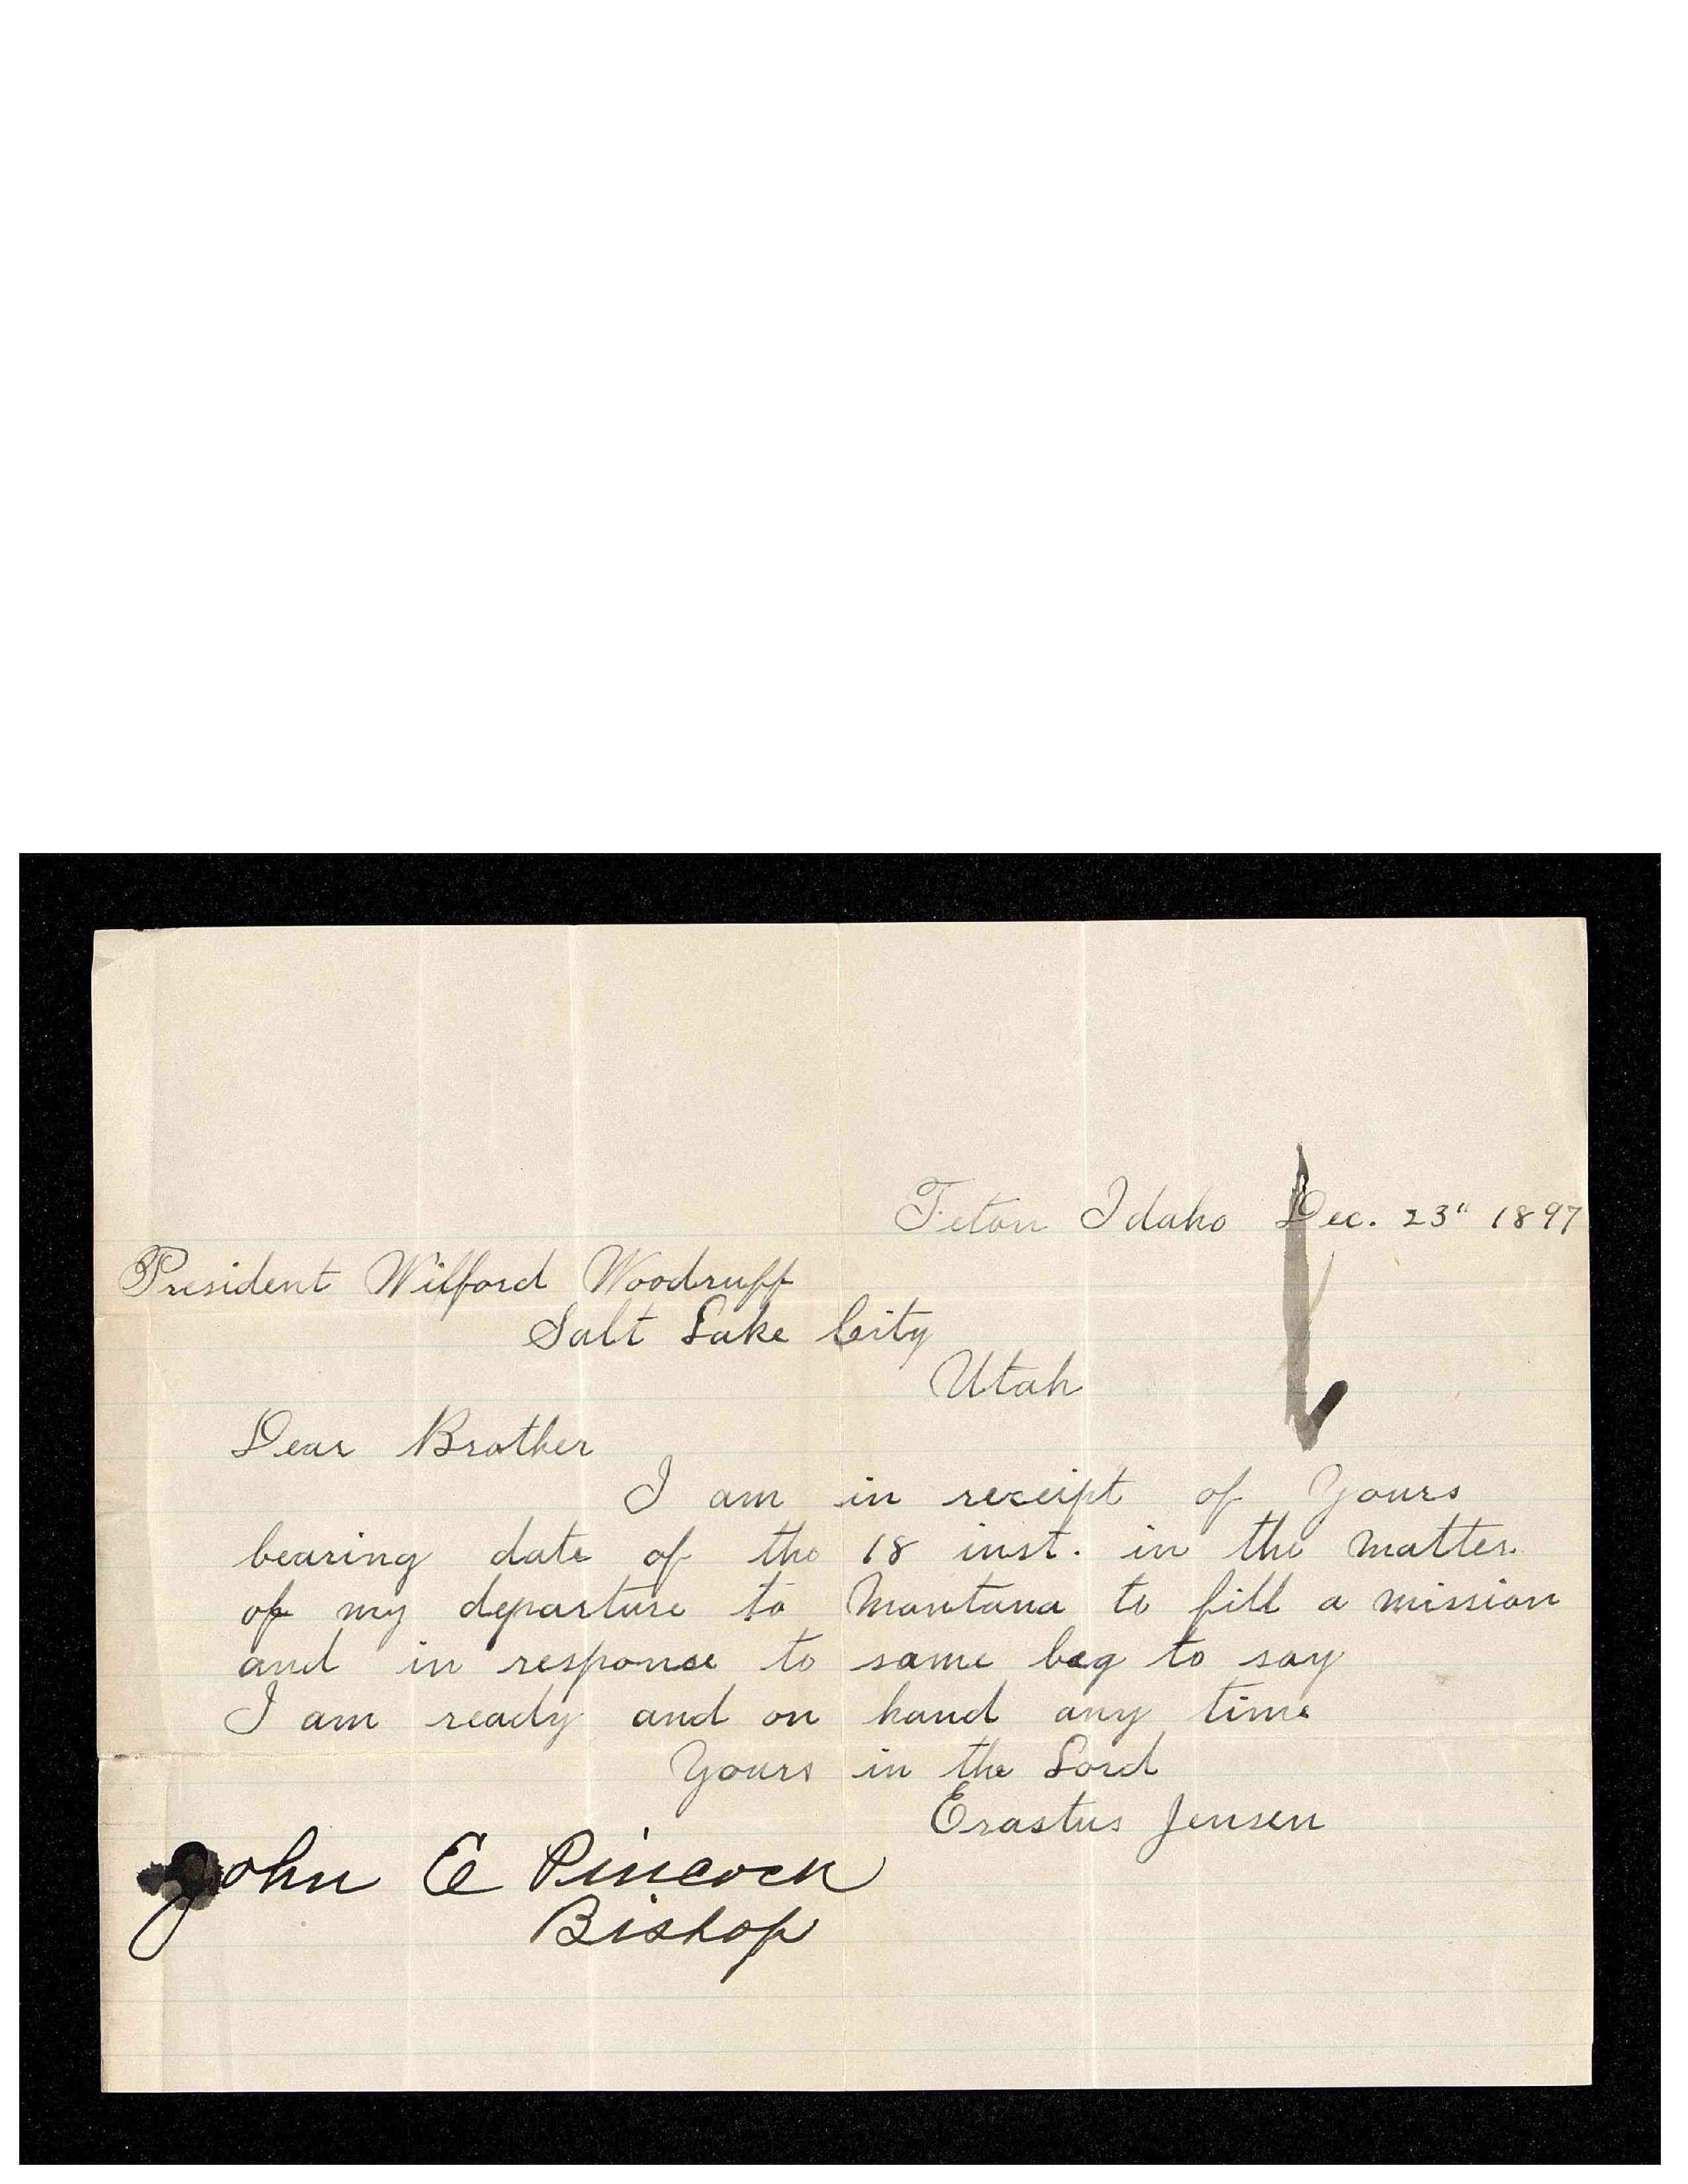 Teton Idaho Dec. 23" 1897
President Wilford Woodruff
Salt Lake City
Utah
Dear Brother
I am in receipt of Yours
bearing date of the 18 inst. in the matter.
of my departure to Montana to fill a mission
and in response to same beg to say
I am ready and on hand any time
Yours in the Lord
Erastus Jensen
John E Pincock
Bishop